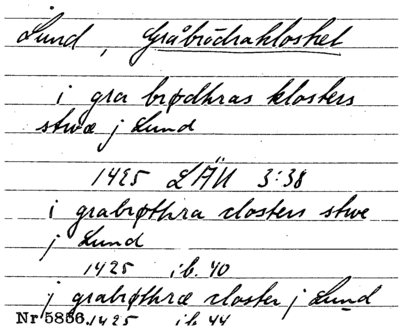 Lund, Gråbrödraklostret
i gra brødhras klosters
stwæ j Lund
1425 LÄU 3:38
i grabrøthra closters stwe
j Lund
1425 ib. 40
j grabrøthræ closter j Lund
Nr 5856. 1425 ib. 44